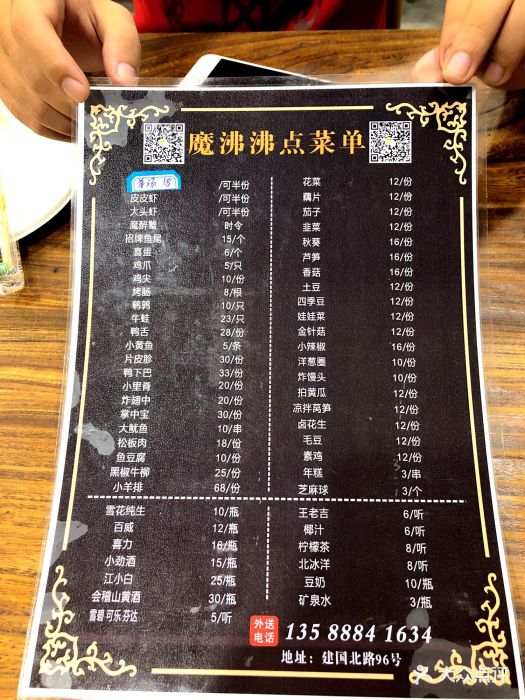 魔沸沸点菜单
15 /可半份
皮皮虾 /可半份
大头虾 /可半份
魔醉蟹 时令
招牌鱼尾 15/个
喜蛋 6/个
鸡爪 5/只
鸡尖 10/份
烤肠 8/根
鹌鹑 10/只
牛蛙 23/只
鸭舌 28/份
小黄鱼 5/条
片皮胗 30/份
鸭下巴 33/份
小里脊 20/份
炸翅中 20/份
掌中宝 30/份
大鱿鱼 10/串
松板肉 18/份
鱼豆腐 10/份
黑椒牛柳 25/份
小羊排 68/份
花菜 12/份
藕片 12/份
茄子 12/份
韭菜 12/份
秋葵 16/份
芦笋 16/份
香菇 16/份
土豆 12/份
四季豆 12/份
娃娃菜 12/份
金针菇 12/份
小辣椒 16/份
洋葱圈 10/份
炸馒头 10/份
拍黄瓜 12/份
凉拌莴笋 12/份
卤花生 12/份
毛豆 12/份
素鸡 12/份
年糕 3/串
芝麻球 3/个
雪花纯生 10/瓶
百威 12/瓶
喜力 16/瓶
小劲酒 15/瓶
江小白 25/瓶
会稽山黄酒 30/瓶
雪碧 可乐 芬达 5/听
王老吉 6/听
椰汁 6/听
柠檬茶 8/听
北冰洋 8/听
豆奶 10/瓶
矿泉水 3/瓶
外送电话 135 8884 1634
地址：建国北路96号
大众点评